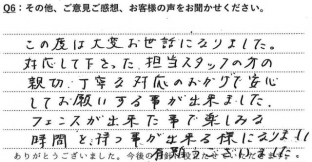 Q6：その他、ご意見ご感想、お客様の声をお聞かせください。
この度は大変お世話になりました。
対応して下さった、担当スタッフの方の
親切、丁寧な対応のおかげで安心
してお願いする事が出来ました。
フェンスが出来た事で楽しみる
時間を持つ事が出来る様になりました
有難うございました。
ありがとうございました。今後の